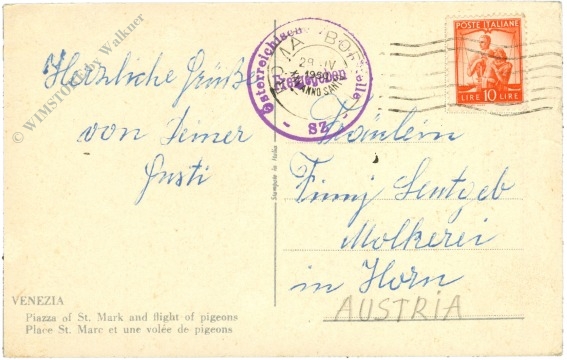 © WIMSTORE by Walkner
Herzliche Grüße
von Deiner
Gusti
VENEZIA
Piazza of St. Mark and flight of pigeons
Place St. Marc et une volée de pigeons
Stampato in Italia
Österreichische
Zensurstelle
- 82 -
ROMA BORGO
29 IV
ANNO SANTO
POSTE ITALIANE
LIRE 10 LIRE
Fräulein
Molkerei
in Horn
AUSTRIA